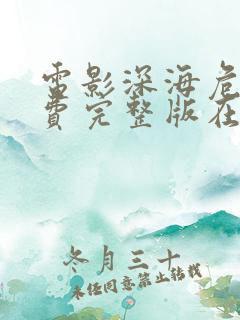 電影深海危
費完整版在
冬月三十
未经同意禁止转载